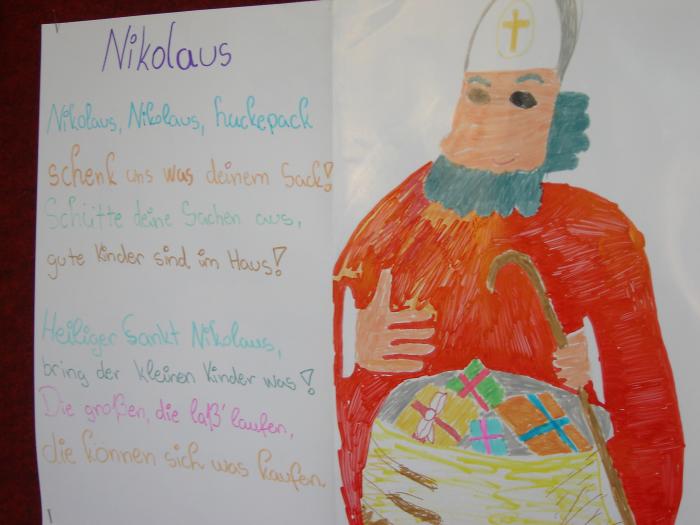 Nikolaus
Nikolaus, Nikolaus, huckepack
schenk uns was deinem Sack!
Schütte deine Sachen aus,
gute Kinder sind im Haus!
Heiliger Sankt Nikolaus,
bring der kleinen Kinder was!
Die großen, die laß' laufen,
die können sich was kaufen.